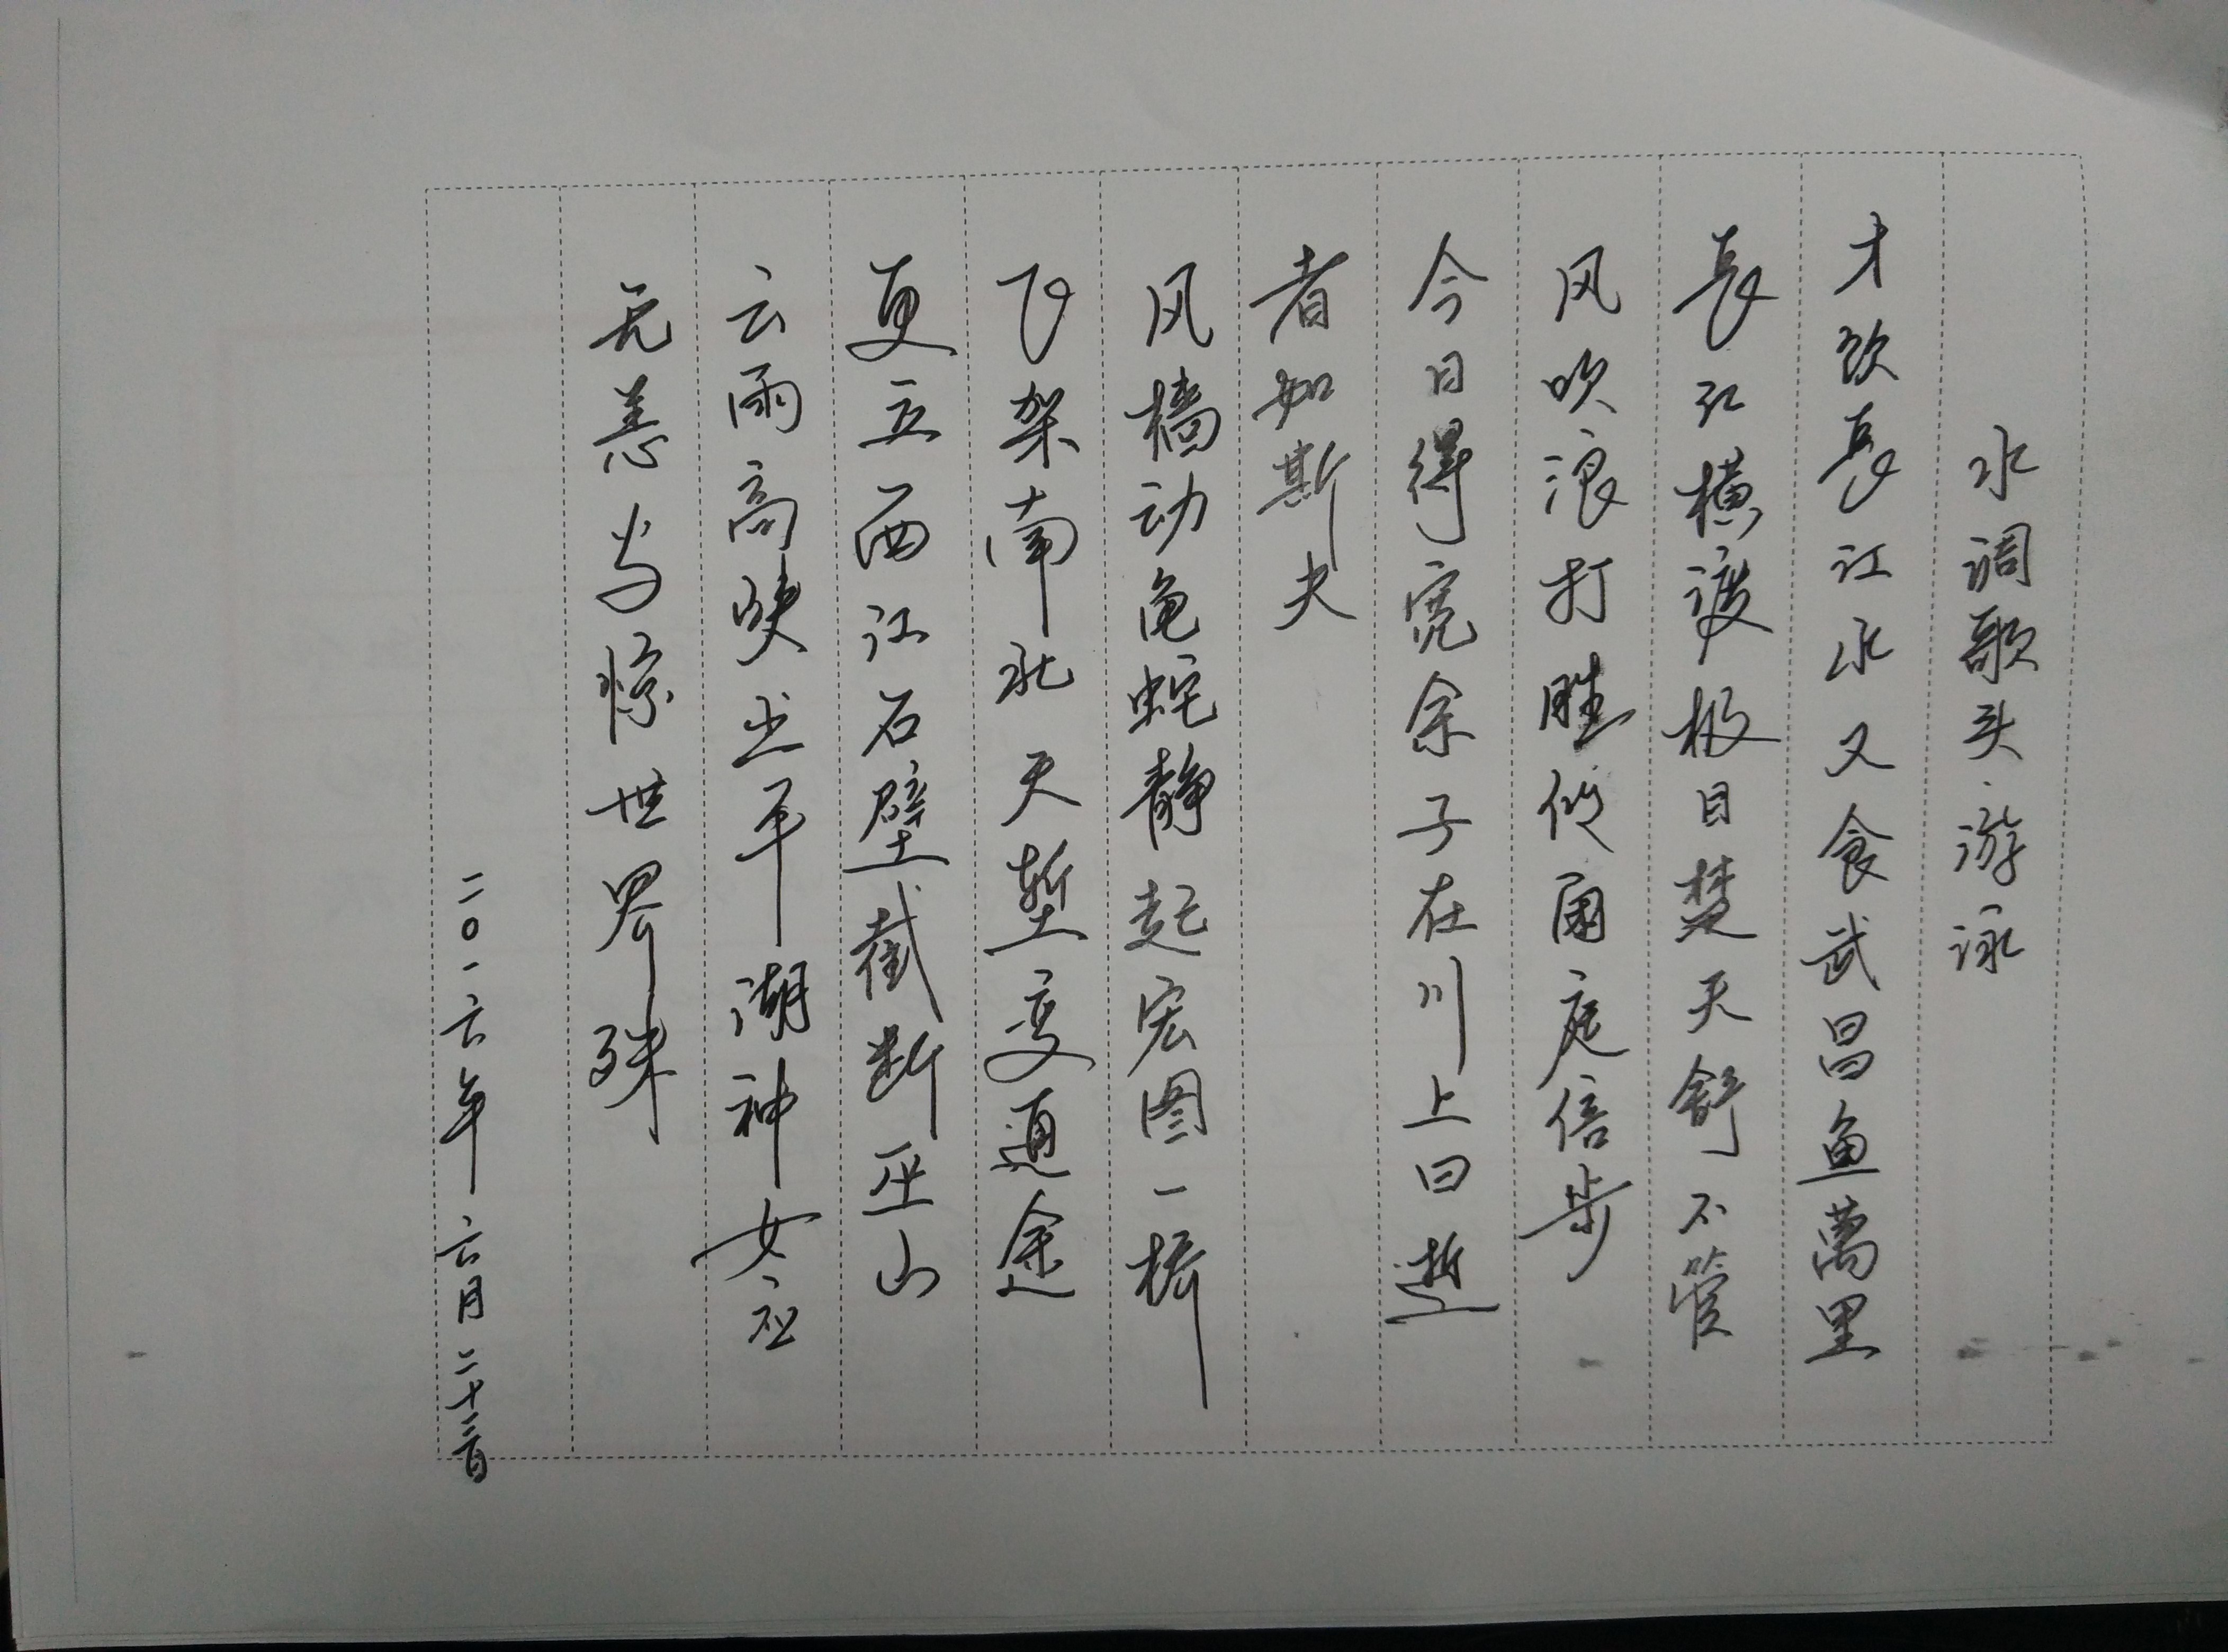 水调歌头·游泳
才饮長江水又食武昌鱼萬里
長江横渡极目楚天舒不管
风吹浪打胜似闲庭信步
今日得宽余子在川上曰逝
者如斯夫
风樯动龟蛇静起宏图一桥
飞架南北天堑变通途
更立西江石壁截断巫山
云雨高峡出平湖神女应
无恙当惊世界殊
二〇一六年六月二十三日